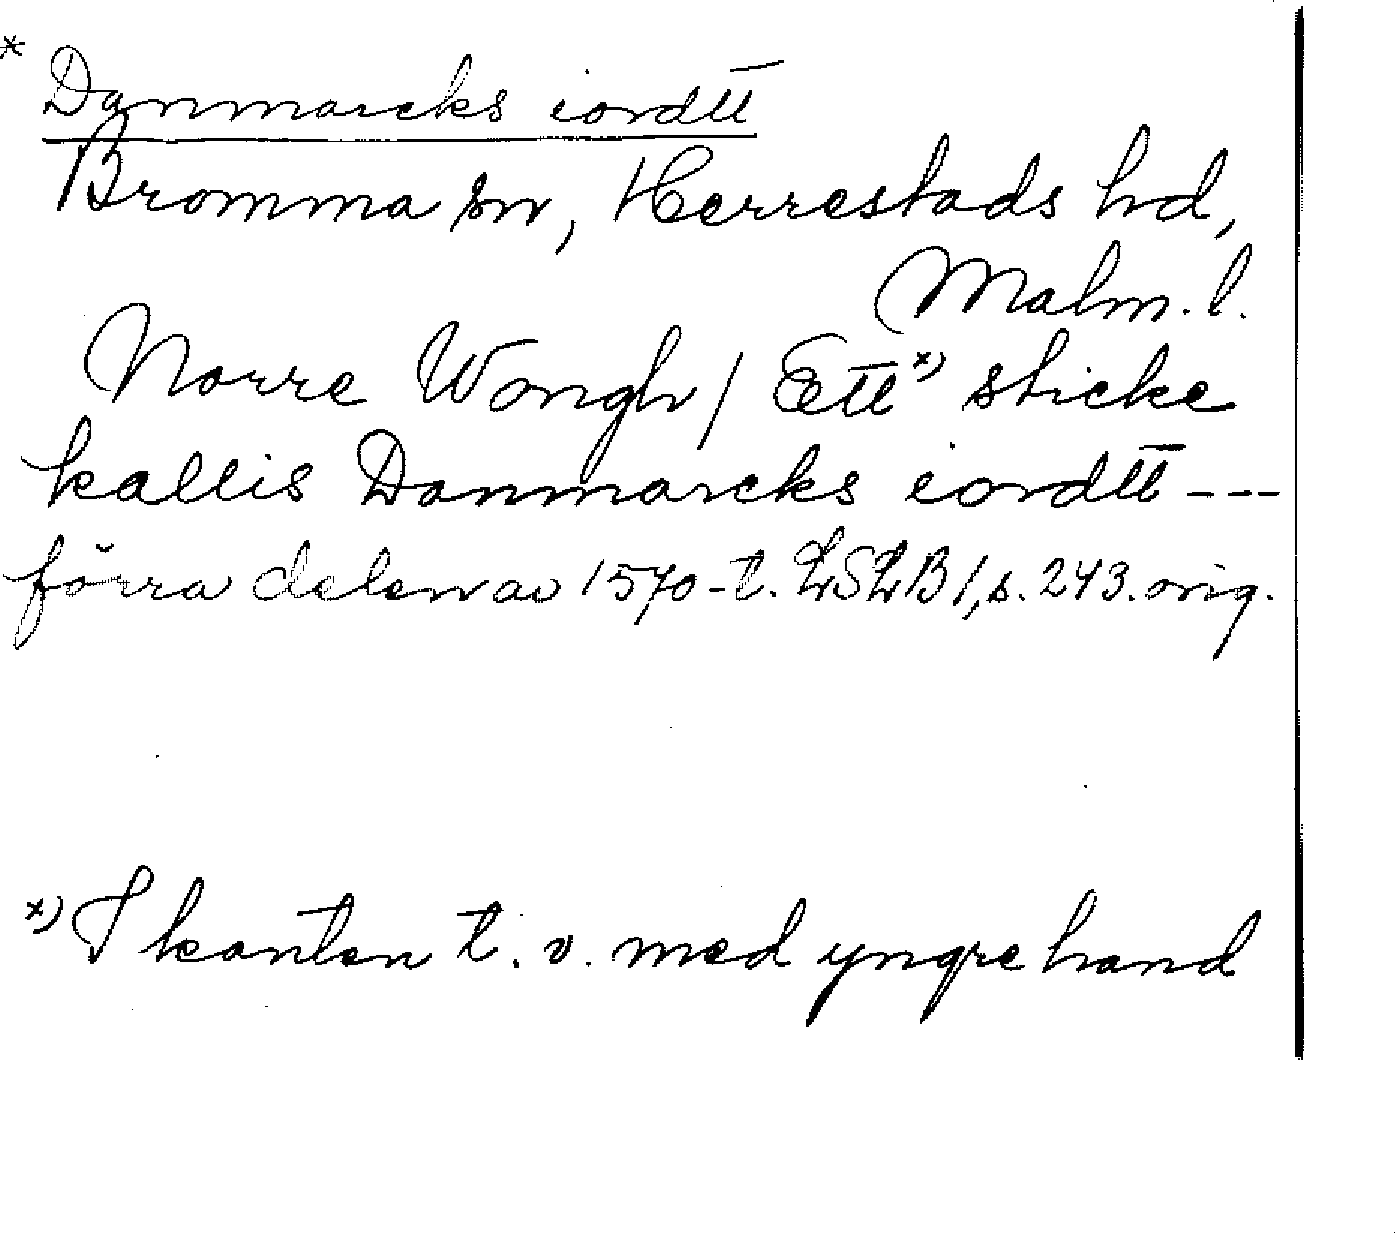 * Danmarcks iordtt
Bromma sn, Herrestads hd,
Malm. l.
Norre Wongh / Ett x) sticke
kallis Danmarcks iordtt ---
förra delen av 1570-t. LSLB 1, s. 243. orig.
x) I kanten t. v. med yngre hand